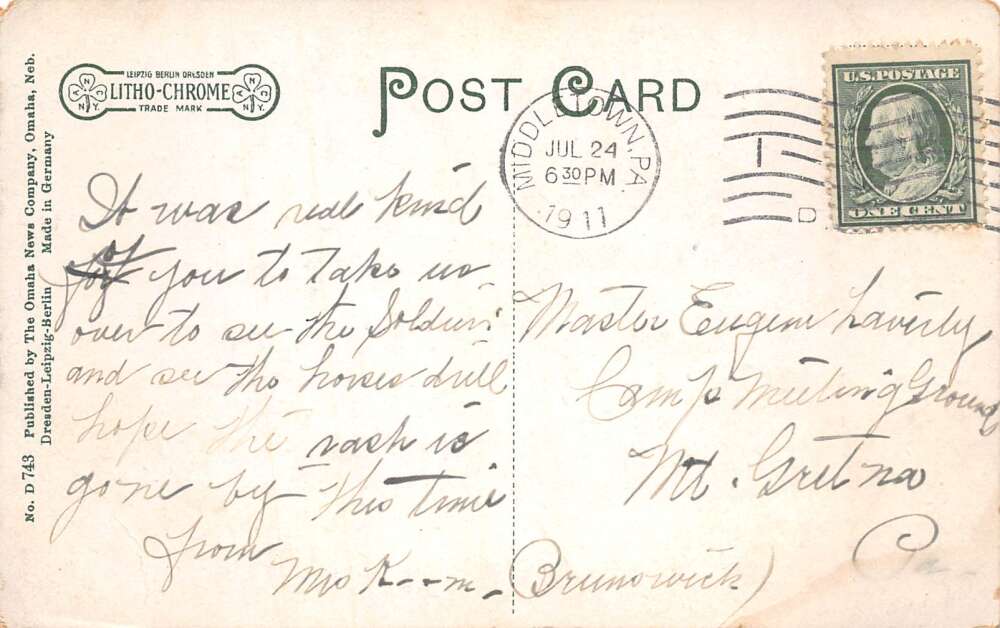 No. D 743 Published by The Omaha News Company, Omaha, Neb.
Dresden-Leipzig-Berlin Made in Germany
LEIPZIG BERLIN DRESDEN
ANCNY LITHO-CHROME ANCNY
TRADE MARK
POST CARD
MIDDLETOWN, PA.
JUL 24
6 30 PM
1911
1
D
U.S. POSTAGE
ONE CENT
It was real kind
of you to take us
over to see the Soldiers
and see the horses drill
hope the rash is
gone by this time
from
Mrs K--m- Brunswick)
Master Eugene Laverty
Camp Meeting Ground
Mt. Gretna
Pa-